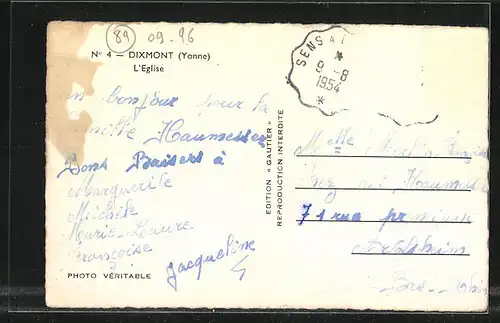 89
09-96
N° 4 — DIXMONT (Yonne)
L'Eglise
SENS A
9 - 8
1954
un bonjour pour la
famille Haumesser
Bons Baisers à
Marguerite
Michèle
Marie-Laure
Françoise
Jacqueline
PHOTO VÉRITABLE
EDITION « GAUTIER »
REPRODUCTION INTERDITE
Melle
chez
71 rue
Bas-Rhin